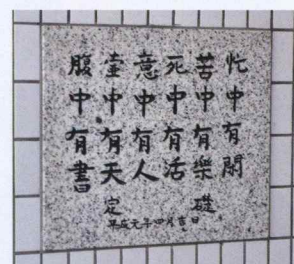 忙中有閑
苦中有樂
死中有活
意中有人
壷中有天
腹中有書
定礎
平成元年四月吉日